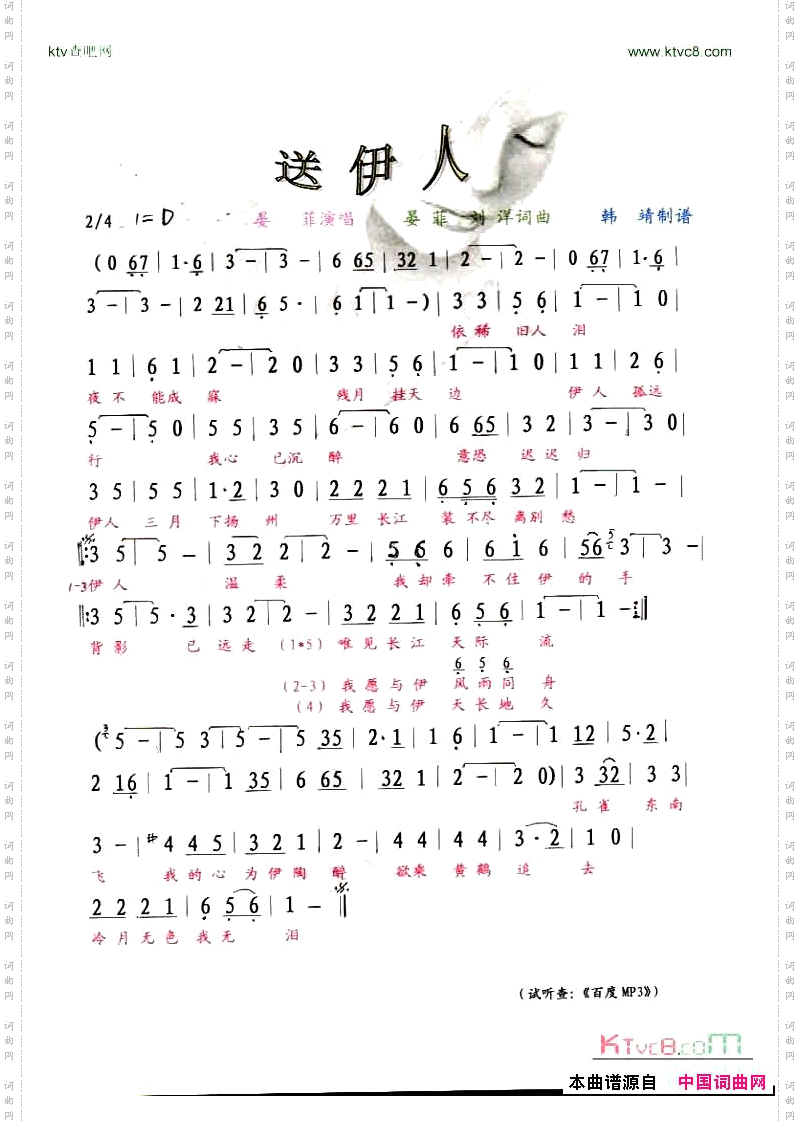 ktv查吧网 www.ktvc8.com
送伊人
2/4 1=D 晏 菲演唱 晏 菲 刘 洋词曲 韩 靖制谱
(0 67 | 1·6 | 3 - | 3 - | 6 65 | 32 1 | 2 - | 2 - | 0 67 | 1·6 |
3 - | 3 - | 2 21 | 6 5· | 6 1 | 1 -) | 3 3 | 5 6 | 1 - | 1 0 |
依稀 旧人 泪
1 1 | 6 1 | 2 - | 2 0 | 3 3 | 5 6 | 1 - | 1 0 | 1 1 | 2 6 |
夜不 能成 寐 残月 挂天 边 伊人 孤远
5 - | 5 0 | 5 5 | 3 5 | 6 - | 6 0 | 6 65 | 3 2 | 3 - | 3 0 |
行 我心 已沉 醉 意恐 迟迟 归
3 5 | 5 5 | 1·2 | 3 0 | 2 2 2 1 | 6 5 6 3 2 | 1 - | 1 - |
伊人 三月 下扬 州 万里 长江 装不尽 离别 愁
3 5 | 5 - | 3 2 2 | 2 - | 5 6 | 6 i 6 | 56 3 | 3 - |
1-3伊人 温 柔 我却牵 不住伊 的 手
3 5 | 5·3 | 3 2 2 | 2 - | 3 2 2 1 | 6 5 6 | 1 - | 1 - :||
背影 已 远走 (1*5) 唯见长江 天际 流
6 5 6
(2-3) 我愿与伊 风雨同 舟
(4) 我愿与伊 天长地 久
(5 - | 5 3 | 5 - | 5 35 | 2·1 | 1 6 | 1 - | 1 12 | 5·2 |
2 16 | 1 - | 1 35 | 6 65 | 32 1 | 2 - | 2 0) | 3 32 | 3 3 |
孔雀 东南
3 - | #4 4 5 | 3 2 1 | 2 - | 4 4 | 4 4 | 3·2 | 1 0 |
飞 我的心 为伊陶 醉 欲乘 黄鹤 追 去
2 2 2 1 | 6 5 6 | 1 - ||
冷月无色 我无 泪
(试听查:《百度MP3》)
KTvc8.com
本曲谱源自 中国词曲网
词曲网